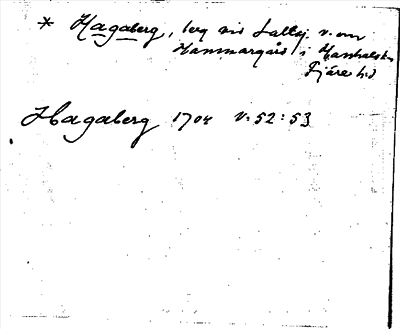 * Hagaberg, berg vid Lallsj v. om
Hammargård i Hanhals sn
Fjäre hd
Hagaberg 1704 V: 52: 53